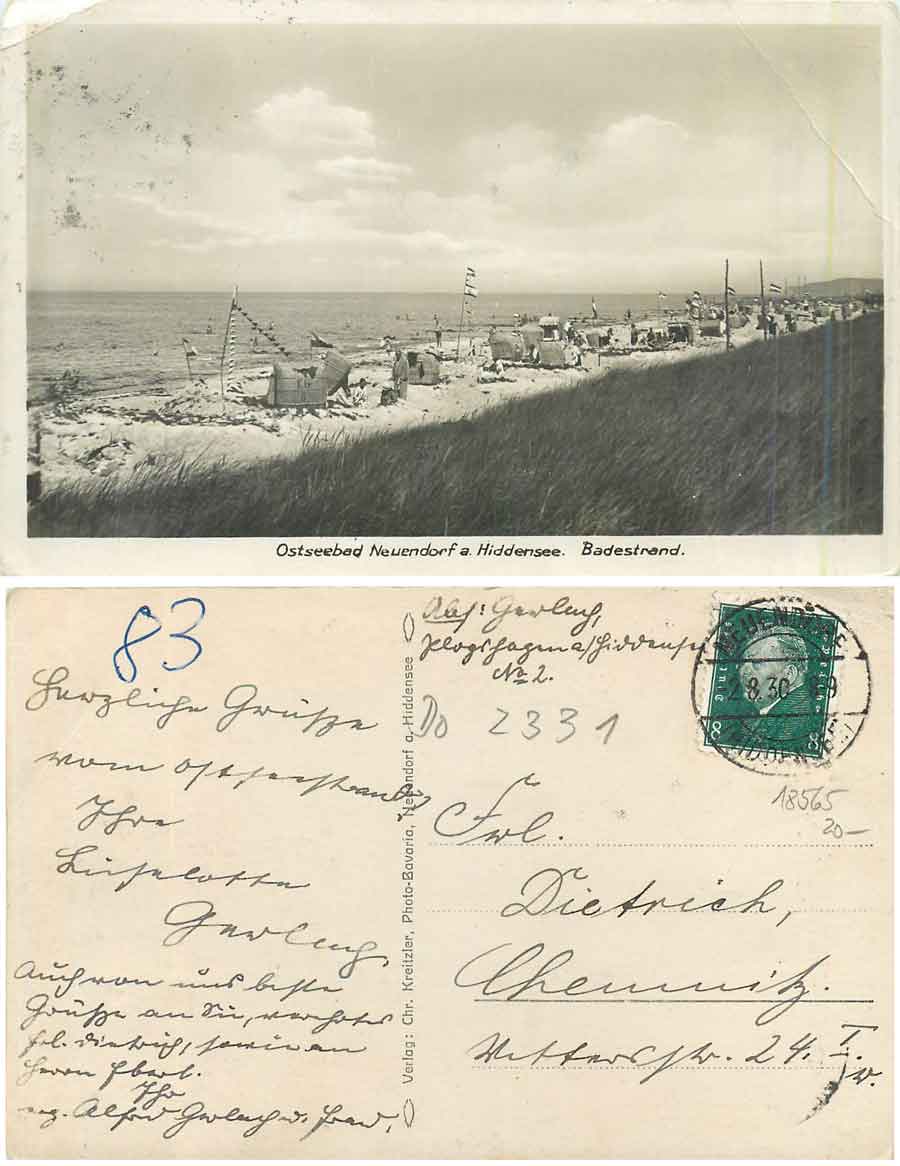 Ostseebad Neuendorf a. Hiddensee. Badestrand.
83
Herzliche Grüße
vom Ostseestrand
Ihre
Liselotte
Gerlach,
Auch von uns beste
Grüße an Sie, verehrtes
Frl. Dietrich, sowie an
Herrn Ebert.
Ihr
erg. Alfred Gerlach u. Frau,
Verlag: Chr. Kreitzler, Photo-Bavaria, Neuendorf a. Hiddensee
Abs: Gerlach,
Plogshagen a/Hiddensee
No 2.
Do 2331
NEUENDORF
2.8.30
8
18565
20-
Frl.
Dietrich,
Chemnitz.
str. 24. I.